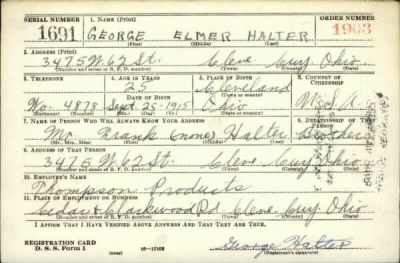 SERIAL NUMBER 1. NAME (Print) ORDER NUMBER
1691 GEORGE ELMER HALTER 1903
(First) (Middle) (Last)
2. ADDRESS (Print)
3475 W. 62 St. Cleve. Cuy. Ohio
(Number and street or R. F. D. number) (Town) (County) (State)
3. TELEPHONE 4. AGE IN YEARS 5. PLACE OF BIRTH 6. COUNTRY OF CITIZENSHIP
25 Cleveland
DATE OF BIRTH (Town or county)
Wo. 4878 Sept. 25-1915 Ohio U.S.A.
(Exchange) (Number) (Mo.) (Day) (Yr.) (State or country)
7. NAME OF PERSON WHO WILL ALWAYS KNOW YOUR ADDRESS 8. RELATIONSHIP OF THAT PERSON
Mr. Frank (none) Halter Brother
(Mr., Mrs., Miss) (First) (Middle) (Last)
9. ADDRESS OF THAT PERSON
3475 W. 62 St. Cleve. Cuy. Ohio
(Number and street or R. F. D. number) (Town) (County) (State)
10. EMPLOYER'S NAME
Thompson Products
11. PLACE OF EMPLOYMENT OR BUSINESS
Cedar & Clarkwood Rd. Cleve. Cuy. Ohio
(Number and street or R. F. D. number) (Town) (County) (State)
I AFFIRM THAT I HAVE VERIFIED ABOVE ANSWERS AND THAT THEY ARE TRUE.
REGISTRATION CARD George Halter
D. S. S. Form 1 16-17105 (Registrant's signature)